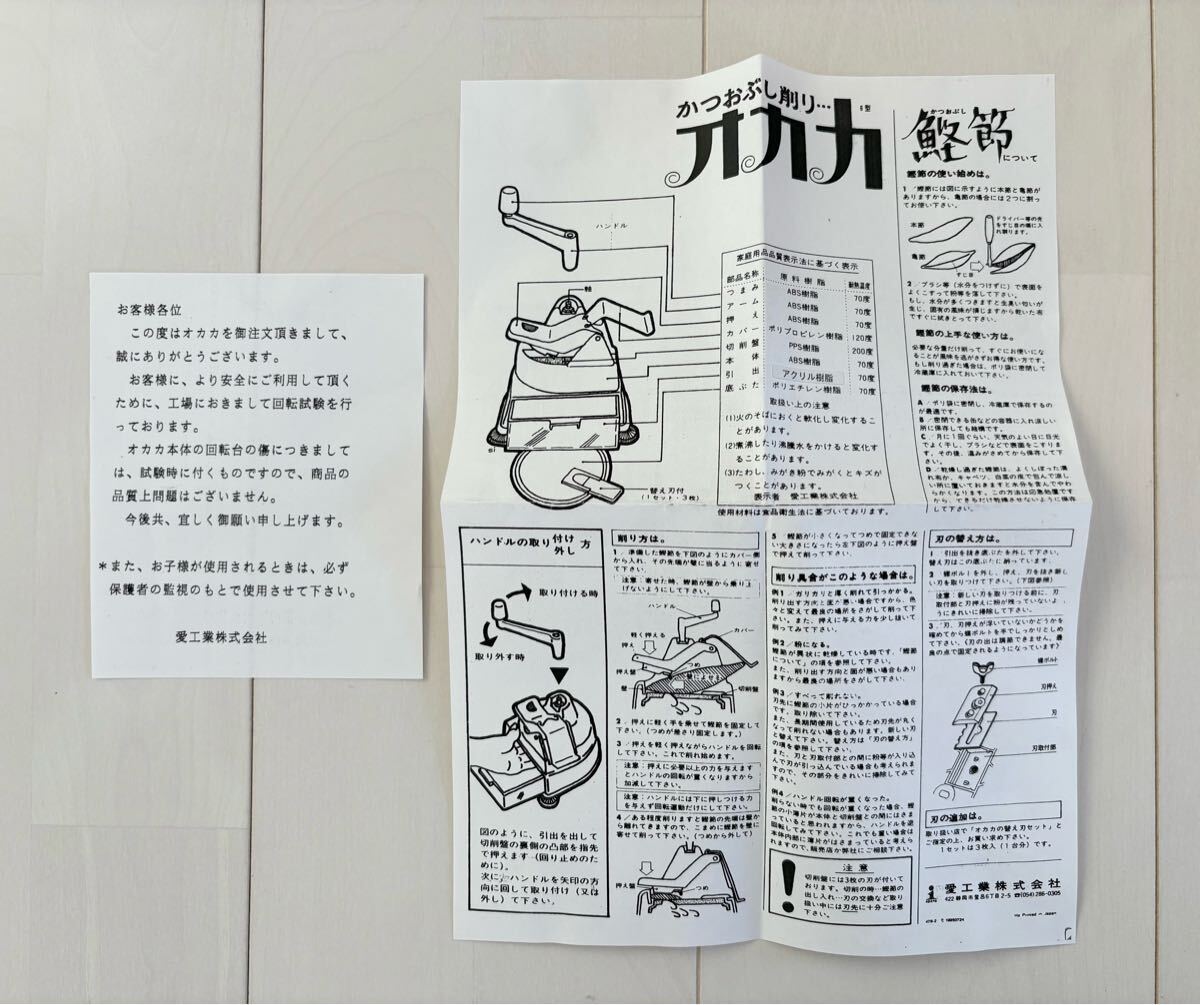 お客様各位
この度はオカカを御注文頂きまして、
誠にありがとうございます。
お客様に、より安全にご利用して頂く
ために、工場におきまして回転試験を行
っております。
オカカ本体の回転台の傷につきまして
は、試験時に付くものですので、商品の
品質上問題はございません。
今後共、宜しく御願い申し上げます。
*また、お子様が使用されるときは、必ず
保護者の監視のもとで使用させて下さい。
愛工業株式会社
かつおぶし削り…
オカカ
ハンドル
軸
替え刃付
(1セット・3枚)
家庭用品品質表示法に基づく表示
部品名称 原料樹脂 耐熱温度
つまみ ABS樹脂 70度
アーム ABS樹脂 70度
押え ABS樹脂 70度
カバー ポリプロピレン樹脂 120度
切削盤 PPS樹脂 200度
本体 ABS樹脂 70度
引出 アクリル樹脂 70度
底ぶた ポリエチレン樹脂 70度
取扱い上の注意
(1)火のそばにおくと軟化し変化するこ
とがあります。
(2)煮沸したり沸騰水をかけると変化す
ることがあります。
(3)たわし、みがき粉でみがくとキズが
つくことがあります。
表示者 愛工業株式会社
使用材料は食品衛生法に基づいております。
かつおぶし
鰹節について
鰹節の使い始めは。
1/鰹節には図に示すように本節と亀節が
ありますから、亀節の場合には2つに割っ
てお使い下さい。
本節
亀節
すじ目
ドライバー等の先
をすじ目の横に入
れ割ります。
2/ブラシ等(水分をつけずに)で表面を
よくこすって粉等を落して下さい。
もし、水分が多くつきますと生臭い匂いが
生じ、固有の風味が損じますから乾いた布
ですぐに拭きとって下さい。
鰹節の上手な使い方は。
必要な分量だけ削って、すぐにお使いにな
ることが風味を逃がさずお得な使い方です。
もし削り過ぎた場合は、ポリ袋に密閉して
冷蔵庫に入れておいて下さい。
鰹節の保存法は。
A/ポリ袋に密閉し、冷蔵庫で保存するの
が最適です。
B/密閉できる缶などの容器に入れ涼しい
所に保存しても結構です。
C/月に1回ぐらい、天気のよい日に日光
でよく干し、ブラシなどで表面をこすりま
す。その後、温みがさめてから保存して下
さい。
D/乾燥し過ぎた鰹節は、よくしぼった濡
れ布か、キャベツ、白菜の皮で包んで涼し
い所に置いておきますと水分を含んでやわ
らかくなります。この方法は応急処置です
から、できるだけ乾燥させないように保存
して下さい。
ハンドルの取り付け外し方
取り付ける時
取り外す時
図のように、引出を出して
切削盤の裏側の凸部を指先
で押えます(回り止めのた
めに)。
次に、ハンドルを矢印の方
向に回して取り付け(又は
外し)て下さい。
削り方は。
1/準備した鰹節を下図のようにカバー側
から入れ、その先端が壁に当るように寄せ
て下さい。
注意:寄せた時、鰹節が盤から乗り上
げないようにして下さい。
ハンドル
カバー
軽く押える
押え
つめ
押え盤
壁
切削盤
2/押えに軽く手を乗せて鰹節を固定して
下さい。(つめが差さり固定します。)
3/押えを軽く押えながらハンドルを回転
して下さい。これで削れ始めます。
注意:押えに必要以上の力を与えます
とハンドルの回転が重くなりますから
加減して下さい。
注意:ハンドルには下に押しつける力
を与えず回転運動だけにして下さい。
4/ある程度削りますと鰹節の先端は壁か
ら離れてきますので、こまめに鰹節を壁に
寄せて削って下さい。(つめから外して)
押え盤
つめ
5/鰹節が小さくなってつめで固定できな
い大きさになったら左下図のように押え盤
で押えて削って下さい。
削り具合がこのような場合は。
例1/ガリガリと厚く削れて引っかかる。
削り出す方向と面が悪い場合ですから、色
々と変えて最良の場所をさがして削って下
さい。また、押えに与える力を少し抜いて
削ってみて下さい。
例2/粉になる。
鰹節が異状に乾燥している時です.「鰹節
について」の項を参照して下さい。
また、削り出す方向と面が悪い場合もあり
ますから最良の場所をさがして下さい。
例3/すべって削れない。
刃先に鰹節の小片がひっかかっている場合
です。取り除いて下さい。
また、長期間使用しているため刃先が丸く
なって削れない場合もあります。新しい刃
と替えて下さい。替え方は「刃の替え方」
の項を参照して下さい。
また、刃と刃取付部との間に粉等が入り込
んで刃が引っ込んでいる場合も考えられま
すので、その部分をきれいに掃除してみて
下さい。
例4/ハンドル回転が重くなった。
削らない時でも回転が重くなった場合、鰹
節の小薄片が本体と切削盤との間にはさま
っていると思われますから、ハンドルを逆
回転してみて下さい。これでも重い場合は
本体内部に薄片がはさまっていると考えら
れますので、販売店か弊社にご相談下さい。
注意
切削盤には3枚の刃が付いて
おります。切削の時…鰹節
の出し入れ…刃の交換など取り
扱い中には刃先に十分ご注意
下さい。
刃の替え方は。
1/引出を抜き底ぶたを外して下さい。
替え刃はこの底ぶたに納っています。
2/蝶ボルトを外し、押え、刃を抜き新し
い刃を取りつけて下さい。(下図参照)
注意:新しい刃を取りつける前に、刃
取付部と刃押えに粉が残っていないよ
うにきれいに掃除して下さい。
3/刃、刃押えが浮いていないかどうかを
確めてから蝶ボルトを手でしっかりとしめ
て下さい。(刃の出は調節できません、最
良の点で固定されるようになっています)
蝶ボルト
刃押え
刃
刃取付部
刃の追加は。
取り扱い店で「オカカの替え刃セット」と
ご指定の上、お買い求め下さい。
1セットは3枚入(1台分)です。
愛工業株式会社
422 静岡市登呂6丁目2-5 ☎(054)286-0305
Printed in Japan